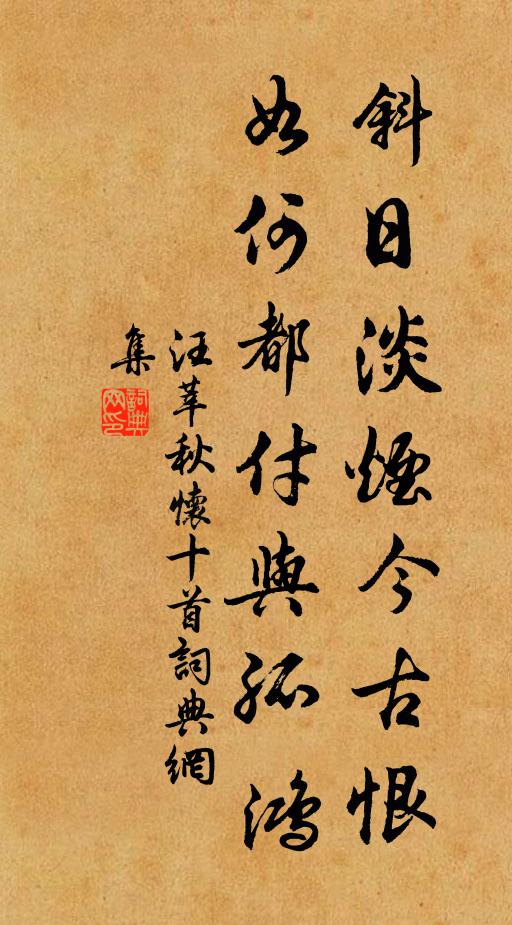 斜日淡煙今古恨
如何都付與孤鴻
汪莘秋懷十首詞典網
集
詞典網印